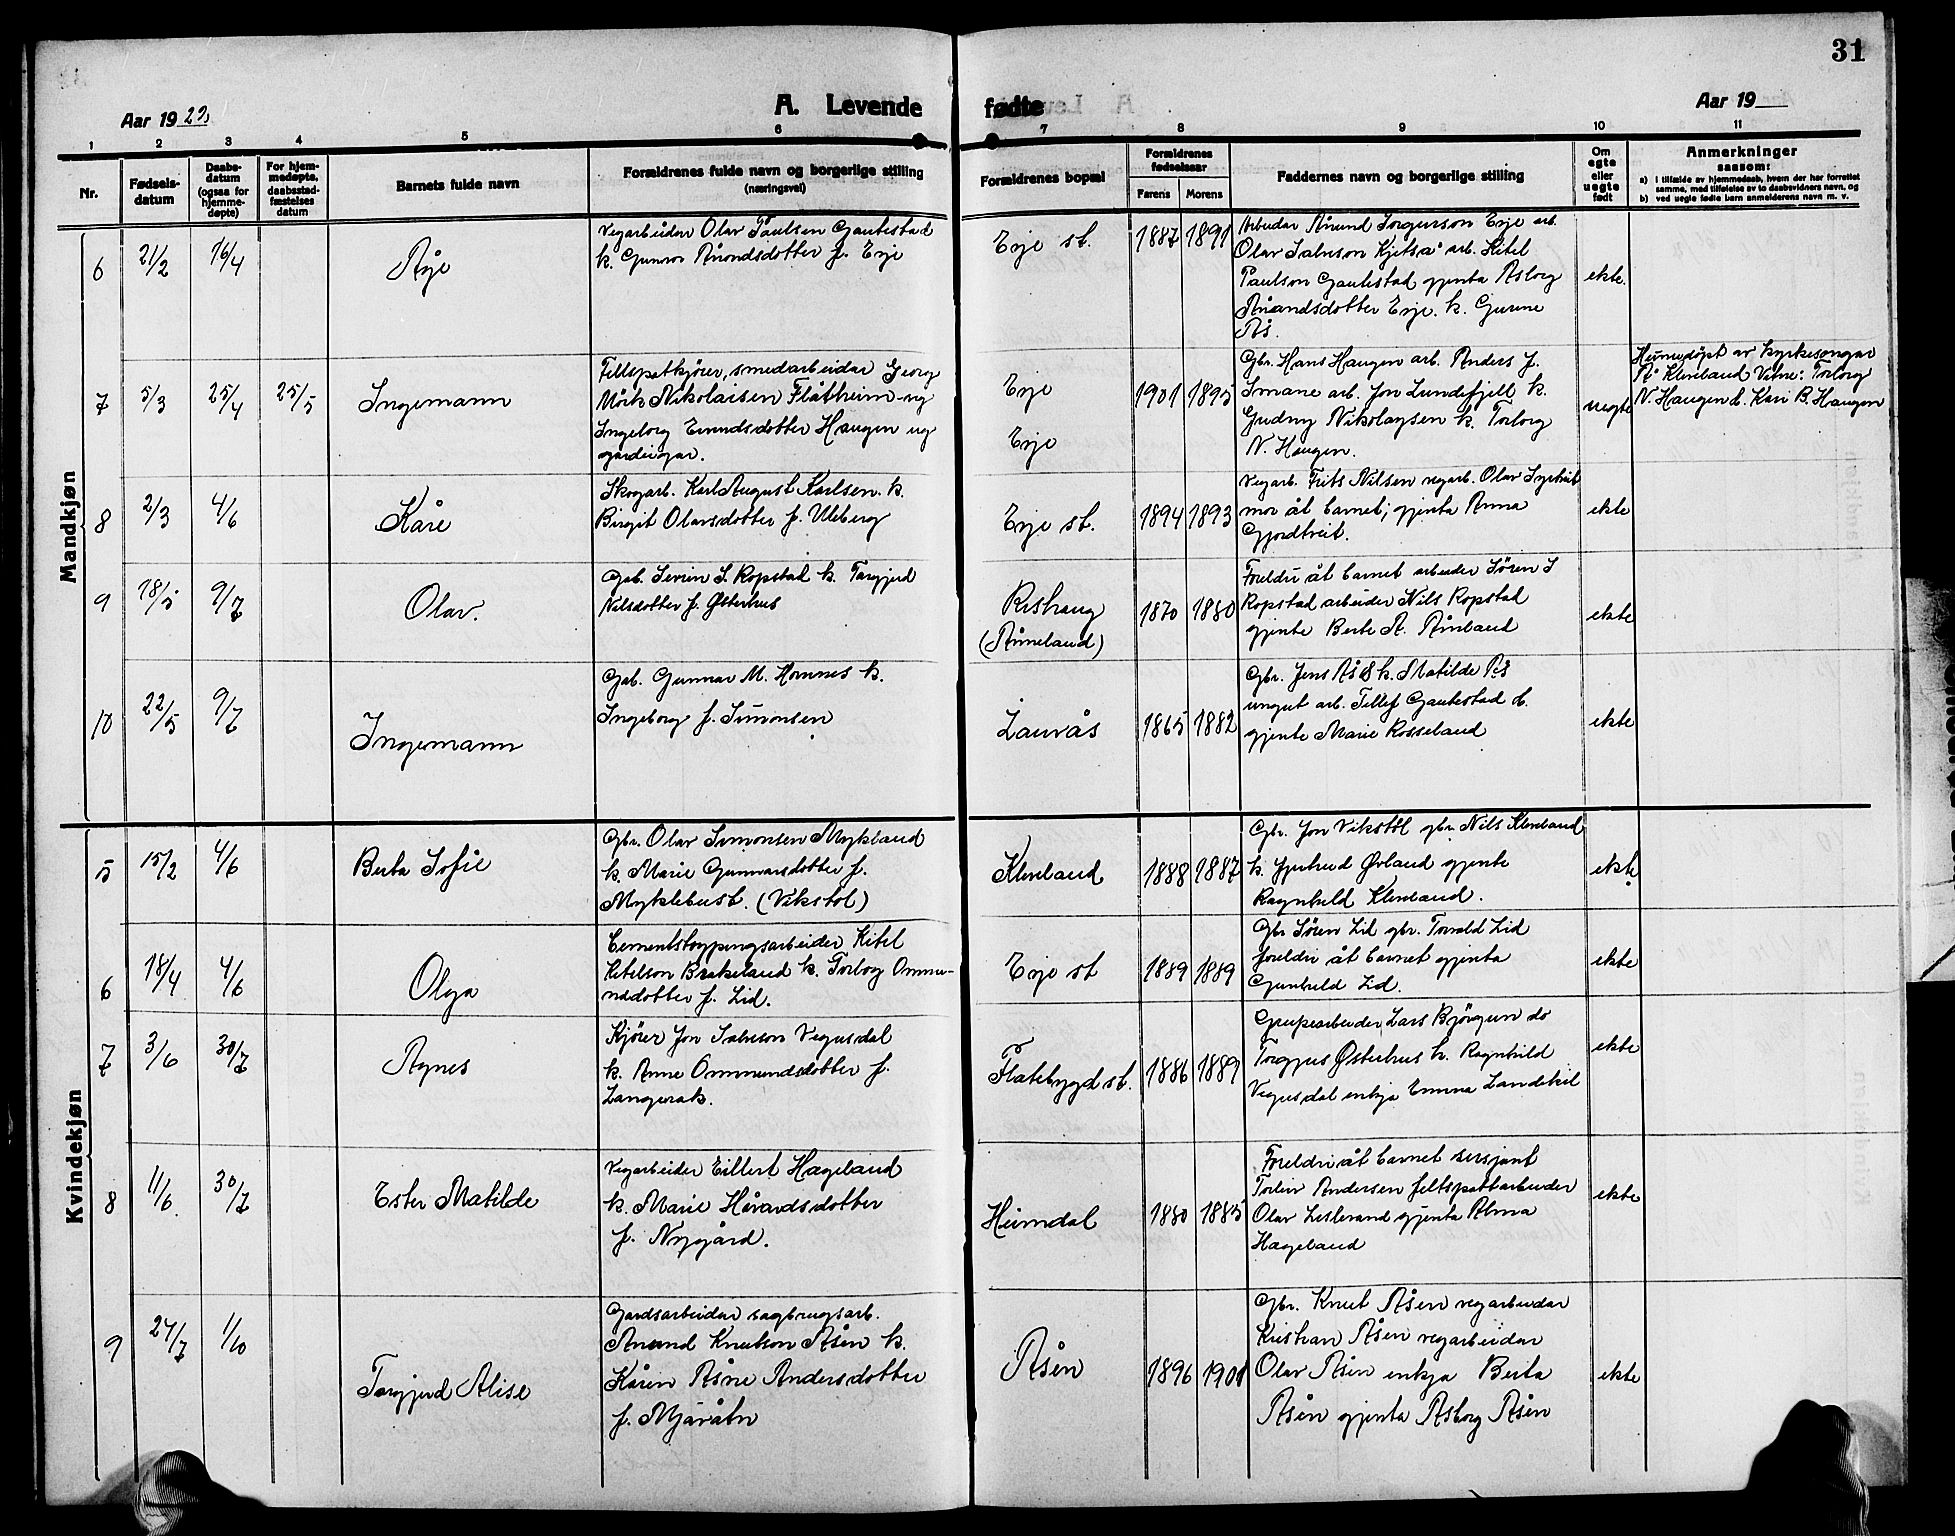 31
Aar 1923.
A. Levende fødte
Aar 19
1 2 3 4 5 6 7 8 9 10 11
Nr.
Fødsels-
datum
Daabs-
datum
(ogsaa for
hjemme-
døpte)
For hjem-
medøpte,
daabsstad-
fæstelses
datum
Barnets fulde navn
Forældrenes fulde navn og borgerlige stilling
(næringsvei)
Forældrenes bopæl
Forældrenes
fødselsaar
Farens Morens
Faddernes navn og borgerlige stilling
Om
egte
eller
uegte
født
Anmerkninger
saasom:
a) i tilfælde av hjemmedaab, hvem der har forrettet
samme, med tilføielse av to daabsvidners navn, og
b) ved uegte fødte barn anmelderens navn m. v.
Mandkjøn
6 21/2 16/4
Åge
Vegarbeider Olav Paulsen Gautestad
k. Gunvor Ånondsdotter f. Evje
Evje st. 1887 1891
Arbeidar Ånund Torgurson Evje arb.
Olav Salveson Kjetså arb. Kitel
Paulson Gautestad gjenta Åsborg
Ånandsdotter Evje. k. Gurine
Ås.
ekte.
7 5/3 25/4 25/5
Ingemann
Feltspatkjører, smedarbeidar Georg
Mørk Nikolaisen Flåtheim - ug
Ingeborg Evindsdotter Haugen ug
gardeigar.
Evje
Evje
1901 1895
Gbr. Hans Haugen arb. Anders J.
Imane arb. Jon Lundefjell k.
Gudny Nikolaysen k. Torborg
N. Haugen.
uegte
Heimedøpt av kyrkesongar
Å Kleveland Vitne: Torborg
N. Haugen k. Kari B. Haugen
8 2/3 4/6
Kåre
Skogarb. Karl August Karlsen k.
Birgit Olavsdotter f. Uleberg
Evje st. 1894 1893
Vegarb. Frits Nilsen vegarb. Olav Syrtveit
mor åt barnet; gjenta Anna
Gjordtveit.
ekte
9 18/5 9/7
Olav.
Gab. Sevrin S. Ropstad k. Torgjerd
Nilsdotter f. Østerhus
Rishaug
(Åneland)
1870 1880
Foreldri åt barnet arbeider Søren S
Ropstad arbeider Nils Ropstad
gjente Berte A. Åneland
ekte
10 22/5 9/7
Ingemann
Gab. Gunnar M. Hornnes k.
Ingeborg f. Simonsen
Lauvås 1865 1882
Gbr. Jens Ås & k. Matilde Ås
ungut arb. Tellef Gautestad &.
gjente Marie Rosseland
ekte
Kvindekjøn
5 15/2 4/6
Berta Sofie
Gbr. Olav Simonsen Mykland
k. Marie Gunnarsdotter f.
Myklebust. (Vikstøl)
Kleveland 1888 1887
Gbr. Jon Vikstøl gbr. Nils Kleveland
k. Gjertrud Øvland gjente
Ragnhild Kleveland.
ekte
6 18/4 4/6
Olga
Cementstøypingsarbeider Kitel
Kitelson Brakeland k. Torborg Ommu-
ndsdotter f. Lid.
Evje st 1889 1889
Gbr Søren Lid gbr. Torvald Lid
foreldri åt barnet gjenta
Gunhild Lid.
ekte
7 3/6 30/7
Agnes
Kjører Jon Salveson Vegusdal
k. Anne Ommundsdotter f.
Langerak.
Flatebygd st. 1886 1889
Grubearbeider Lars Bjørgum do
Torgjus Østerhus k. Ragnhild
Vegusdal enkja Emma Landskil
ekte
8 11/6 30/7
Ester Matilde
Vegarbeider Eillert Hageland
k. Marie Håvardsdotter
f. Nygård.
Heimdal 1880 1885
Foreldri åt barnet sersjant
Torleiv Andersen feltspattarbeider
Olav Leslivand gjenta Alma
Hageland
ekte
9 27/7 1/10
Torgjerd Alise
Gardsarbeidar sagbrugsarb.
Ånund Knutson Åsen k.
Kåren Åsne Andersdotter
f. Mjåvåtn
Åsen 1896 1901
Gbr. Knut Åsen vegarbeidar
Kristian Åsen vegarbeidar
Olav Åsen enkja Berta
Åsen gjenta Åsborg Åsen
ekte